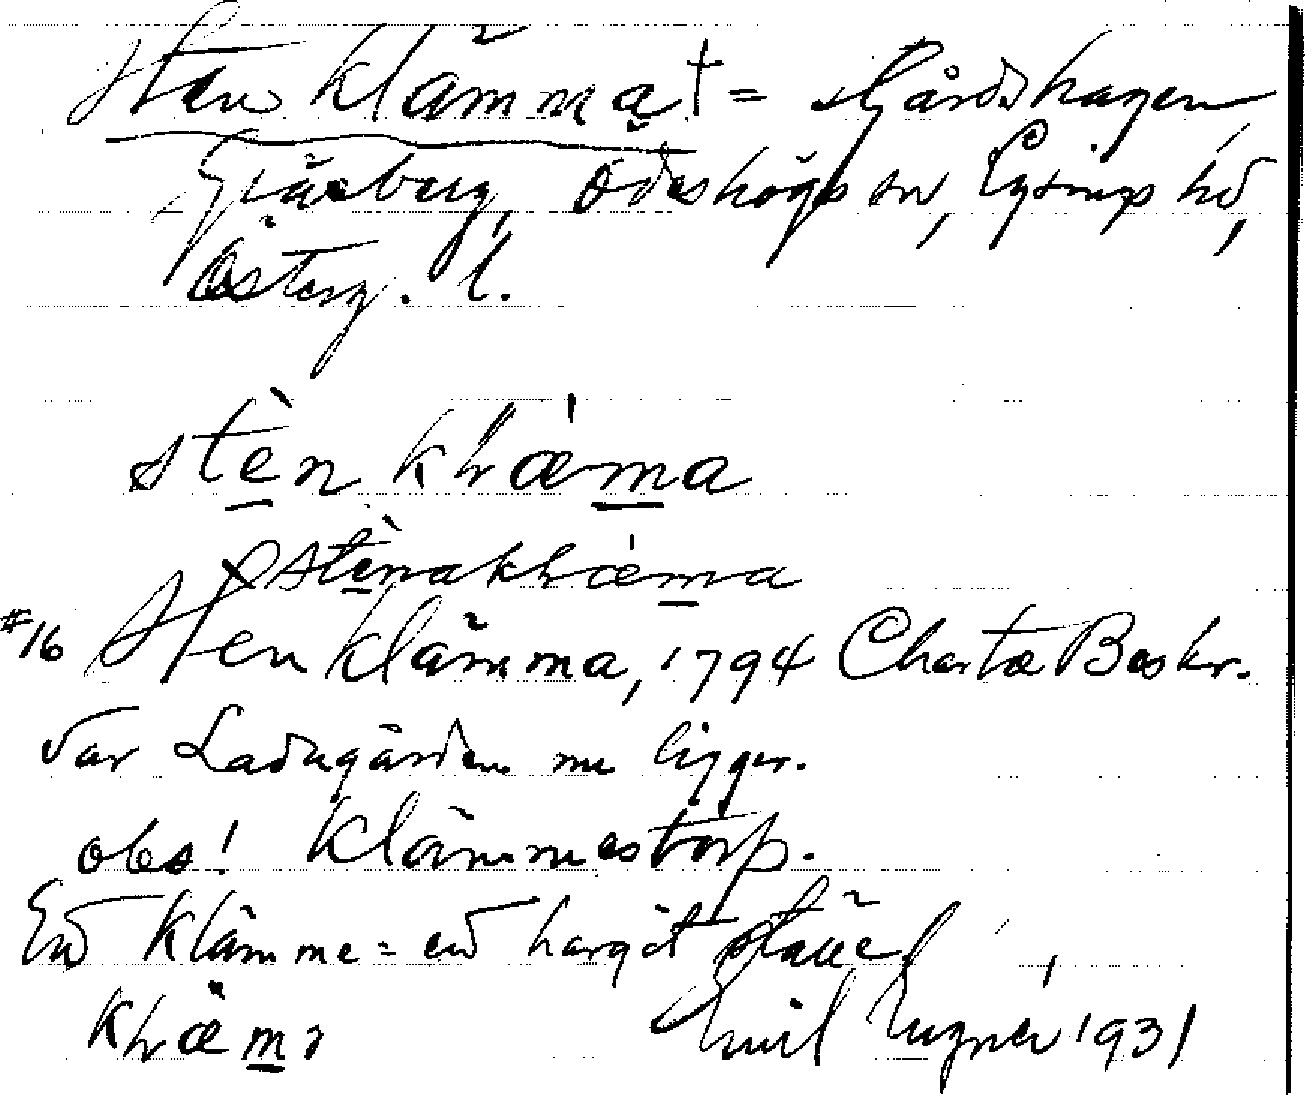 Sten klämma † = Gårdshagen
Gjäaberg, Ödeshögs sn, Lysings hd,
Österg. l.
stèn khæma
stènakhæma
#16 Sten klämma, 1794 Charta Beskr.
Var Ladugården nu ligger.
obs! Klämmestorp.
En klämme = en bargit ställe
khæm
Emil 1931